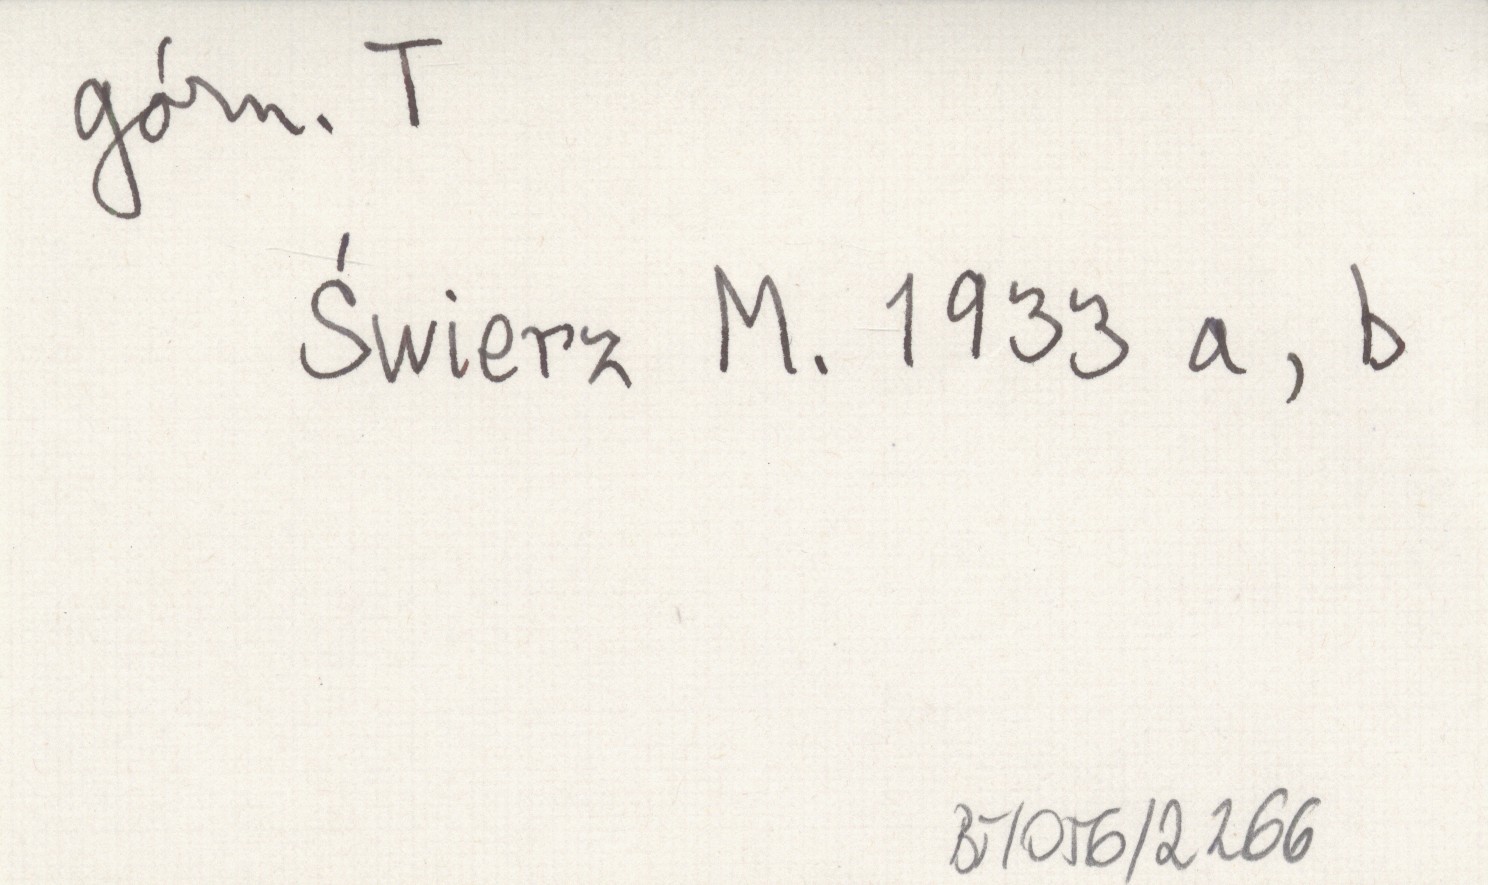 górn. T
Świerz M. 1933 a, b
BT/OTG/2266